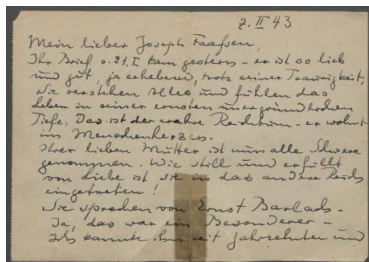 2. II 43
Mein lieber Joseph Faassen,
Ihr Brief v. 21. I kam gestern – er ist so lieb
und gut, ja erhebend, trotz seiner Traurigkeit,
Sie verstehen Alles und fühlen das
Leben in seiner ernsten unergründlichen
Tiefe. Das ist der wahre Reichtum – er wohnt
ins Menschenherz
Ihrer lieben Mutter ist nun alle Schwere
genommen. Wie still und erfüllt
von Liebe ist sie in das andere Reich
eingetreten!
Sie sprechen von Ernst Barlach.
Ja, das war ein Besonderer –
Ich kannte ihn seit Jahrzehnten und